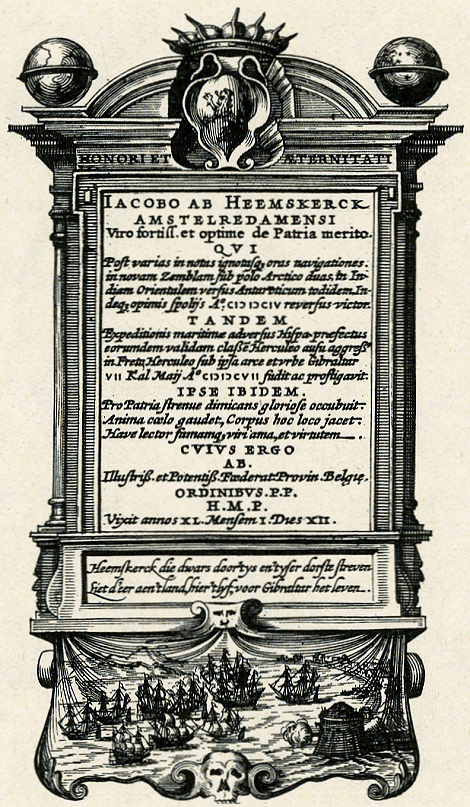 HONORI ET ÆTERNITATI
IACOBO AB HEEMSKERCK
AMSTELREDAMENSI
Viro fortiſſ. et optime de Patria merito.
QVI
Poſt varias in notas ignotaſq, oras navigationes:
in novam Zemblam ſub polo Arctico duas, in In-
diam Orientalem verſus Antarcticum todidem, In-
deq, opimis ſpolijs Aº. CIƆIƆCIV reverſus victor.
TANDEM
Expeditionis maritimæ adverſus Hiſpa. præfectus
eorundem validam claſſē Herculeo auſu aggreſſº
in Freto Herculeo ſub ipſa arce et urbe Gibraltar
VII Kal Maij Aº CIƆIƆCVII fudit ac profligavit.
IPSE IBIDEM.
Pro Patria ſtrenue dimicans glorioſe occubuit.
Anima cœlo gaudet, Corpus hoc loco jacet.
Have lector famamq, viri ama, et virtutem.
CVIVS ERGO
AB.
Illuſtriſſ. et Potentiſſ. Fœderat Provin. Belgię.
ORDINIBVS. P.P.
H.M.P.
Vixit annos XL. Menſem I. Dies XII.
Heemskerck die dwars door't ys en't yſer dorſte ſtreven
Liet d'eer aen't land, hier't lyf, voor Gibraltar het leven.